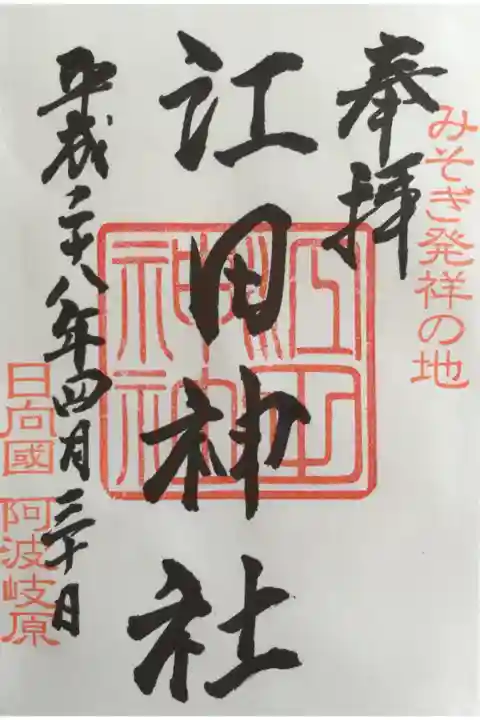 みそぎ発祥の地
奉拝
江田神社
平成二十八年四月三十日
日向國 阿波岐原